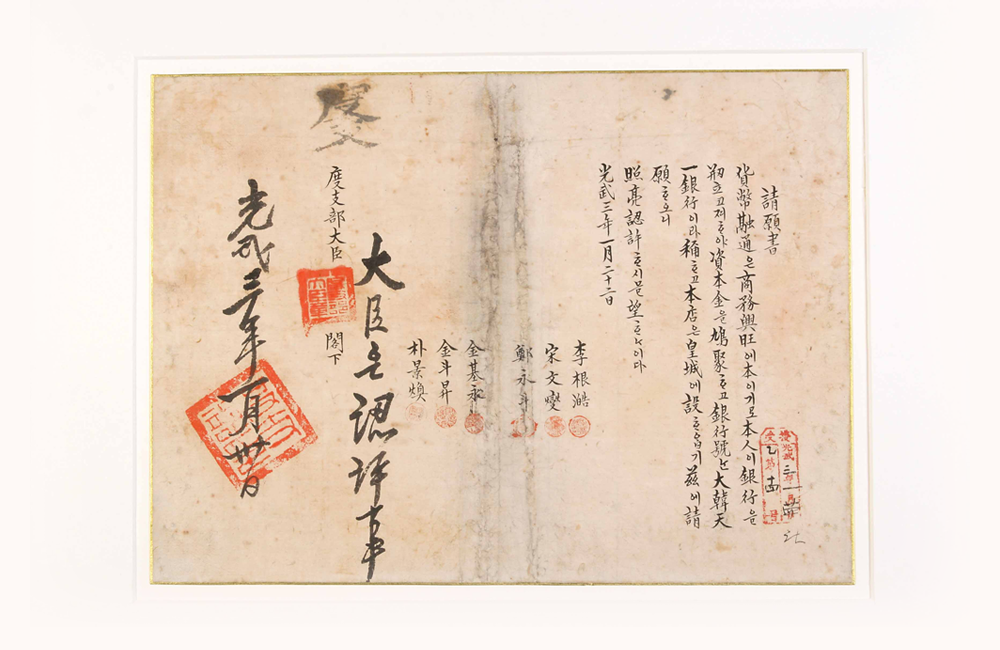 請願書
貨幣融通은商務興旺에本이기로本人이銀行을
刱立고져ᄒᆞ야資本金을鳩聚ᄒᆞ고銀行號ᄂᆞᆫ大韓天
一銀行이라稱ᄒᆞ고本店은皇城에設ᄒᆞ옵기玆에請
願ᄒᆞ오니
照亮認許ᄒᆞ시믈望ᄒᆞᄂᆞ이다
光武三年一月二十二日
李根澔
宋文燮
鄭永斗
金基永
金斗昇
朴景煥
大臣
認許事
度支部大臣 閣下
光武三年一月卅日